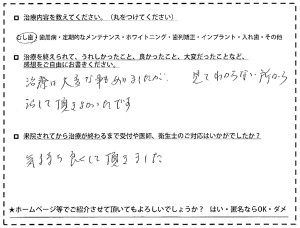 □ 治療内容を教えてください。（丸をつけてください）
むし歯・歯周病・定期的なメンテナンス・ホワイトニング・歯列矯正・インプラント・入れ歯・その他
□ 治療を終えられて、うれしかったこと、良かったこと、大変だったことなど、
感想をご自由にお書きください。
治療は大変な事もありましたが、見てわからない所から
治して頂きよかったです
□ 来院されてから治療が終わるまで受付や医師、衛生士のご対応はいかがでしたか？
気持ち良くして頂きました
★ホームページ等でご紹介させて頂いてもよろしいでしょうか？ はい・匿名ならOK・ダメ